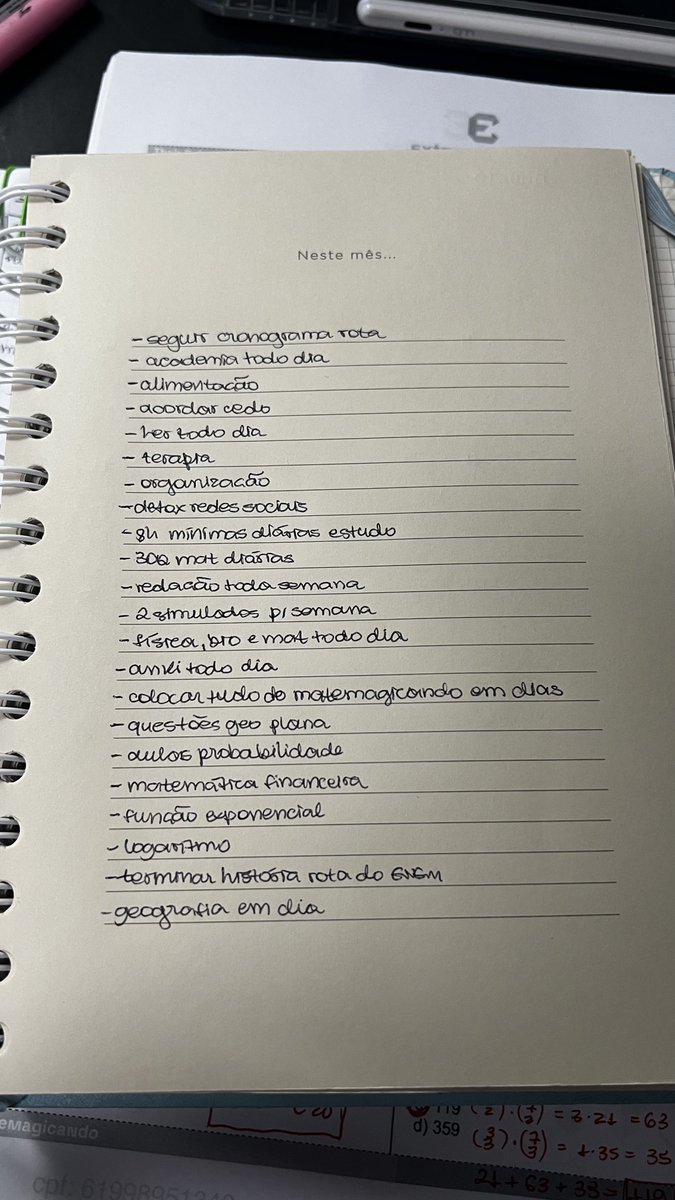 Neste mês...
- seguir cronograma rota
- academia todo dia
- alimentação
- acordar cedo
- ler todo dia
- terapia
- organização
- detox redes sociais
- 8h mínimas diárias estudo
- 30Q mat diárias
- redação toda semana
- 2 simulados p/ semana
- física, bio e mat todo dia
- anki todo dia
- colocar tudo do matemagicando em dias
- questões geo plana
- aulas probabilidade
- matemática financeira
- função exponencial
- logaritmo
- terminar história rota do ENEM
- geografia em dia
eMagicando
d) 359
= 3·21 = 63
= 1·35 = 35